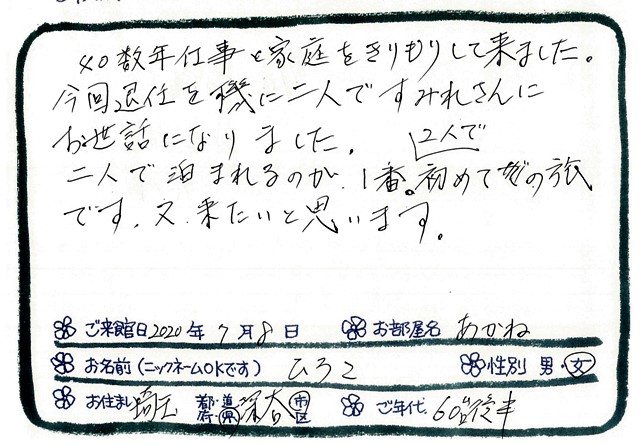 40数年仕事と家庭をきりもりして来ました。
今回退任を機に二人ですみれさんに
お世話になりました。
2人で
二人で泊まれるのが、1番。初めての旅
です。又、来たいと思います。
ご来館日 2020年 7月 8日 お部屋名 あかね
お名前(ニックネームOKです) ひろこ 性別 男・女
お住まい 埼玉 都・道・府・県 深谷 市・区 ご年代 60歳後半